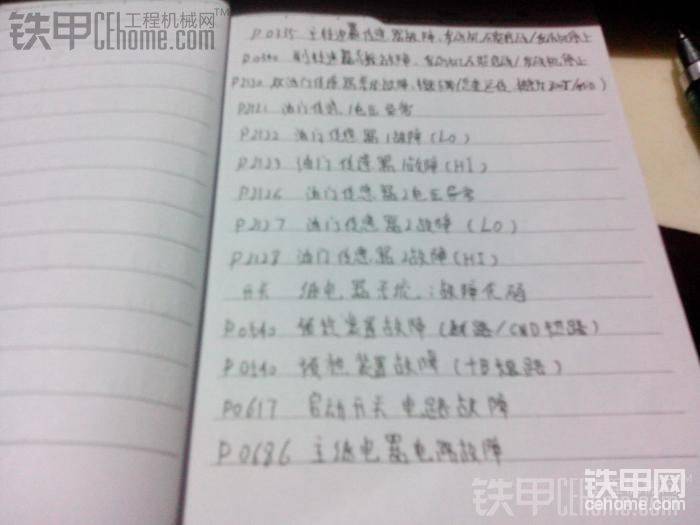 铁甲 工程机械网
CEhome.com
P0335 主转速器传感器故障,发动机不能启动/发动机停止
P0340 副转速器系统故障,发动机不能启动/发动机停止
P2120 双油门传感器系统故障
P2121 油门传感器1电压异常
P2122 油门传感器1故障(LO)
P2123 油门传感器1故障(HI)
P2126 油门传感器2电压异常
P2127 油门传感器2故障(LO)
P2128 油门传感器2故障(HI)
开关 继电器系统:故障代码
P0540 预热装置故障(断路/GND短路)
P0540 预热装置故障(+B短路)
P0617 启动开关电路故障
P0686 主继电器电路故障
铁甲网
cehome.com